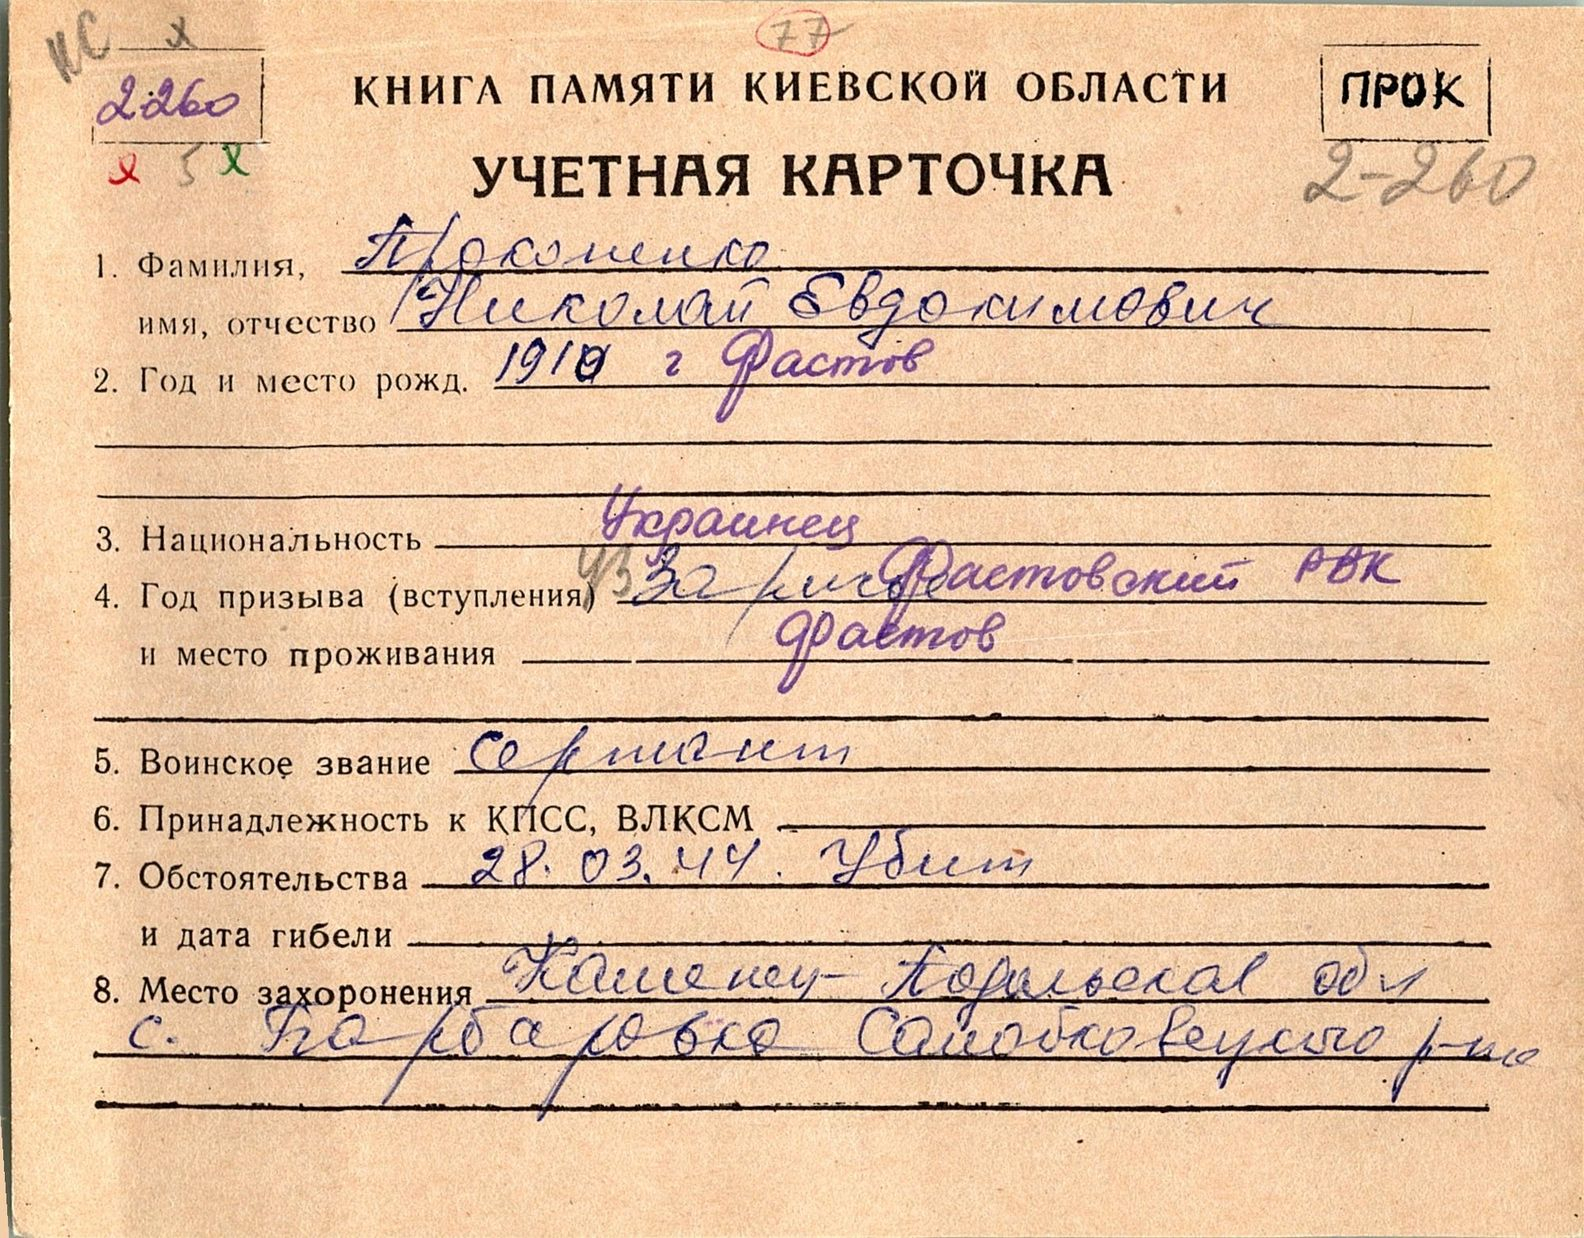 КС х
77
2-260
КНИГА ПАМЯТИ КИЕВСКОЙ ОБЛАСТИ
ПРОК
х 5 х
УЧЕТНАЯ КАРТОЧКА
2-260
1. Фамилия, Прокопенко
имя, отчество Николай Евдокимович
2. Год и место рожд. 1910 г Фастов
3. Национальность Украинец
4. Год призыва (вступления) Фастовский РВК
и место проживания Фастов
5. Воинское звание Сержант
6. Принадлежность к КПСС, ВЛКСМ
7. Обстоятельства 28.03.44. Убит
и дата гибели
8. Место захоронения Каменец-Подольская обл
с. Барбаровка р-на